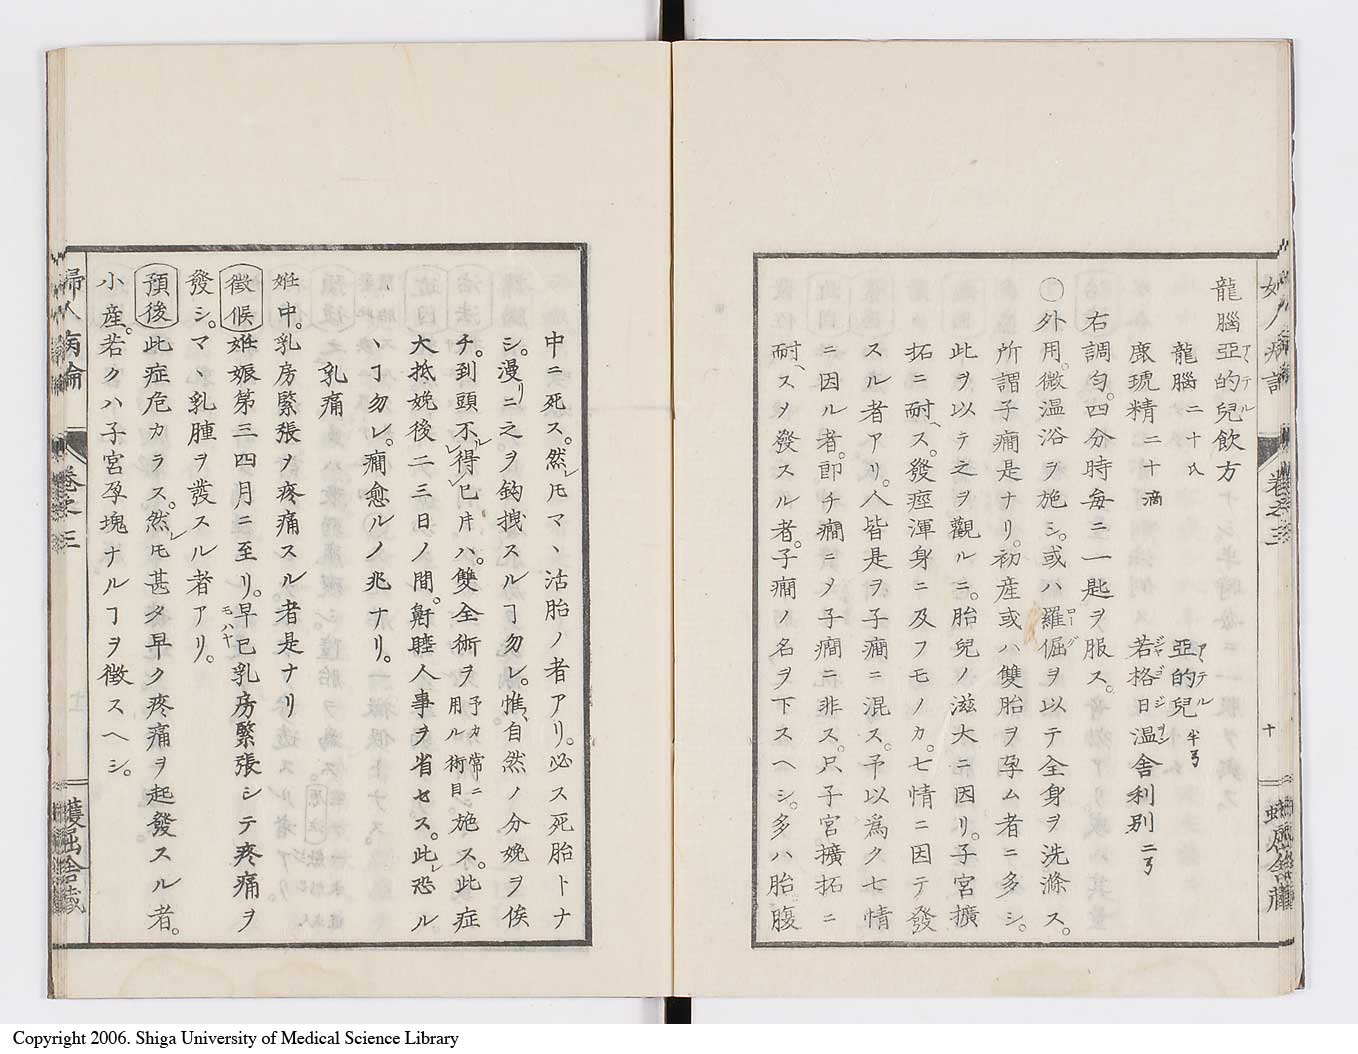 龍腦亞的兒飲方
龍腦二十氏 亞的兒半弓
鹿琥精二十滴 若格日溫舍利別二弓
右調勻。四分時每ニ一匙ヲ服ス。
外用。微溫浴ヲ施シ。或ハ羅倔ヲ以テ全身ヲ洗滌ス。
所謂子癎是ナリ。初産或ハ雙胎ヲ孕ム者ニ多シ。
此ヲ以テ之ヲ觀ルニ。胎兒ノ滋大ニ因リ。子宮擴
拓ニ耐ヘス。發痙渾身ニ及フモノカ。七情ニ因テ發
スル者アリ。人皆是ヲ子癎ニ混ス。予以爲ク七情
ニ因ル者。即チ癎ニメ子癎ニ非ス。只子宮擴拓ニ
耐ヘスメ發スル者。子癎ノ名ヲ下スヘシ。多ハ胎腹
婦人病論 卷之三 十
中ニ死ス。然レ𪜈マヽ活胎ノ者アリ。必ス死胎トナ
シ。漫リニ之ヲ鈎拽スルヿ勿レ。惟自然ノ分娩ヲ俟
チ。到頭不得已片ハ。雙全術ヲ予カ常ニ用ル術目施ス。此症
大抵娩後二三日ノ間。鼾睡人事ヲ省セス。此レ恐ル
ヽヿ勿レ。癎愈ルノ兆ナリ。
之乳痛
妊中。乳房緊張ノ疼痛スル者是ナリ
徵候 妊娠第三四月ニ至リ。早已モハヤ乳房緊張シテ疼痛ヲ
發シ。マヽ乳腫ヲ發スル者アリ。
預後 此症危カラス。然レ𪜈甚タ早ク疼痛ヲ起發スル者。
小産。若クハ子宮孕塊ナルヿヲ徵スヘシ。
婦人病論 卷之三 蠖屈舍藏
Copyright 2006. Shiga University of Medical Science Library